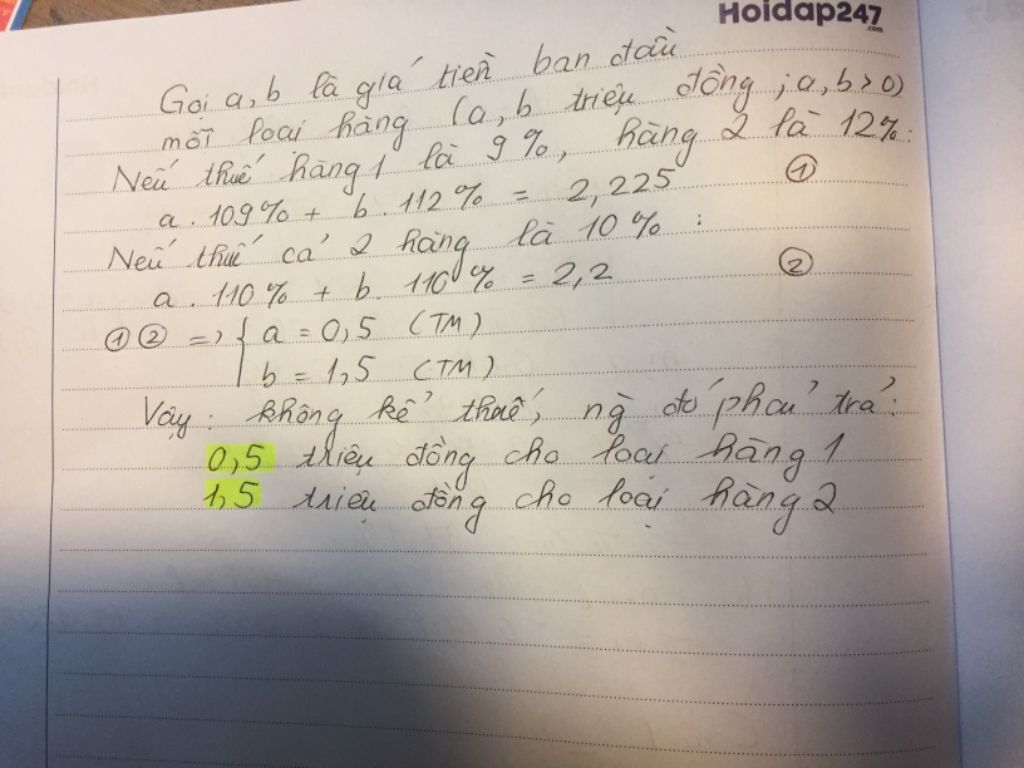 Hoidap247
.com
Gọi a, b là giá tiền ban đầu
mỗi loại hàng (a, b triệu đồng ; a, b > 0)
Nếu thuế hàng 1 là 9%, hàng 2 là 12%:
a . 109% + b . 112% = 2,225 ①
Nếu thuế cả 2 hàng là 10% :
a . 110% + b . 110% = 2,2 ②
① ② => { a = 0,5 (TM)
b = 1,5 (TM)
Vậy : không kể thuế, ng đó phải trả :
0,5 triệu đồng cho loại hàng 1
1,5 triệu đồng cho loại hàng 2